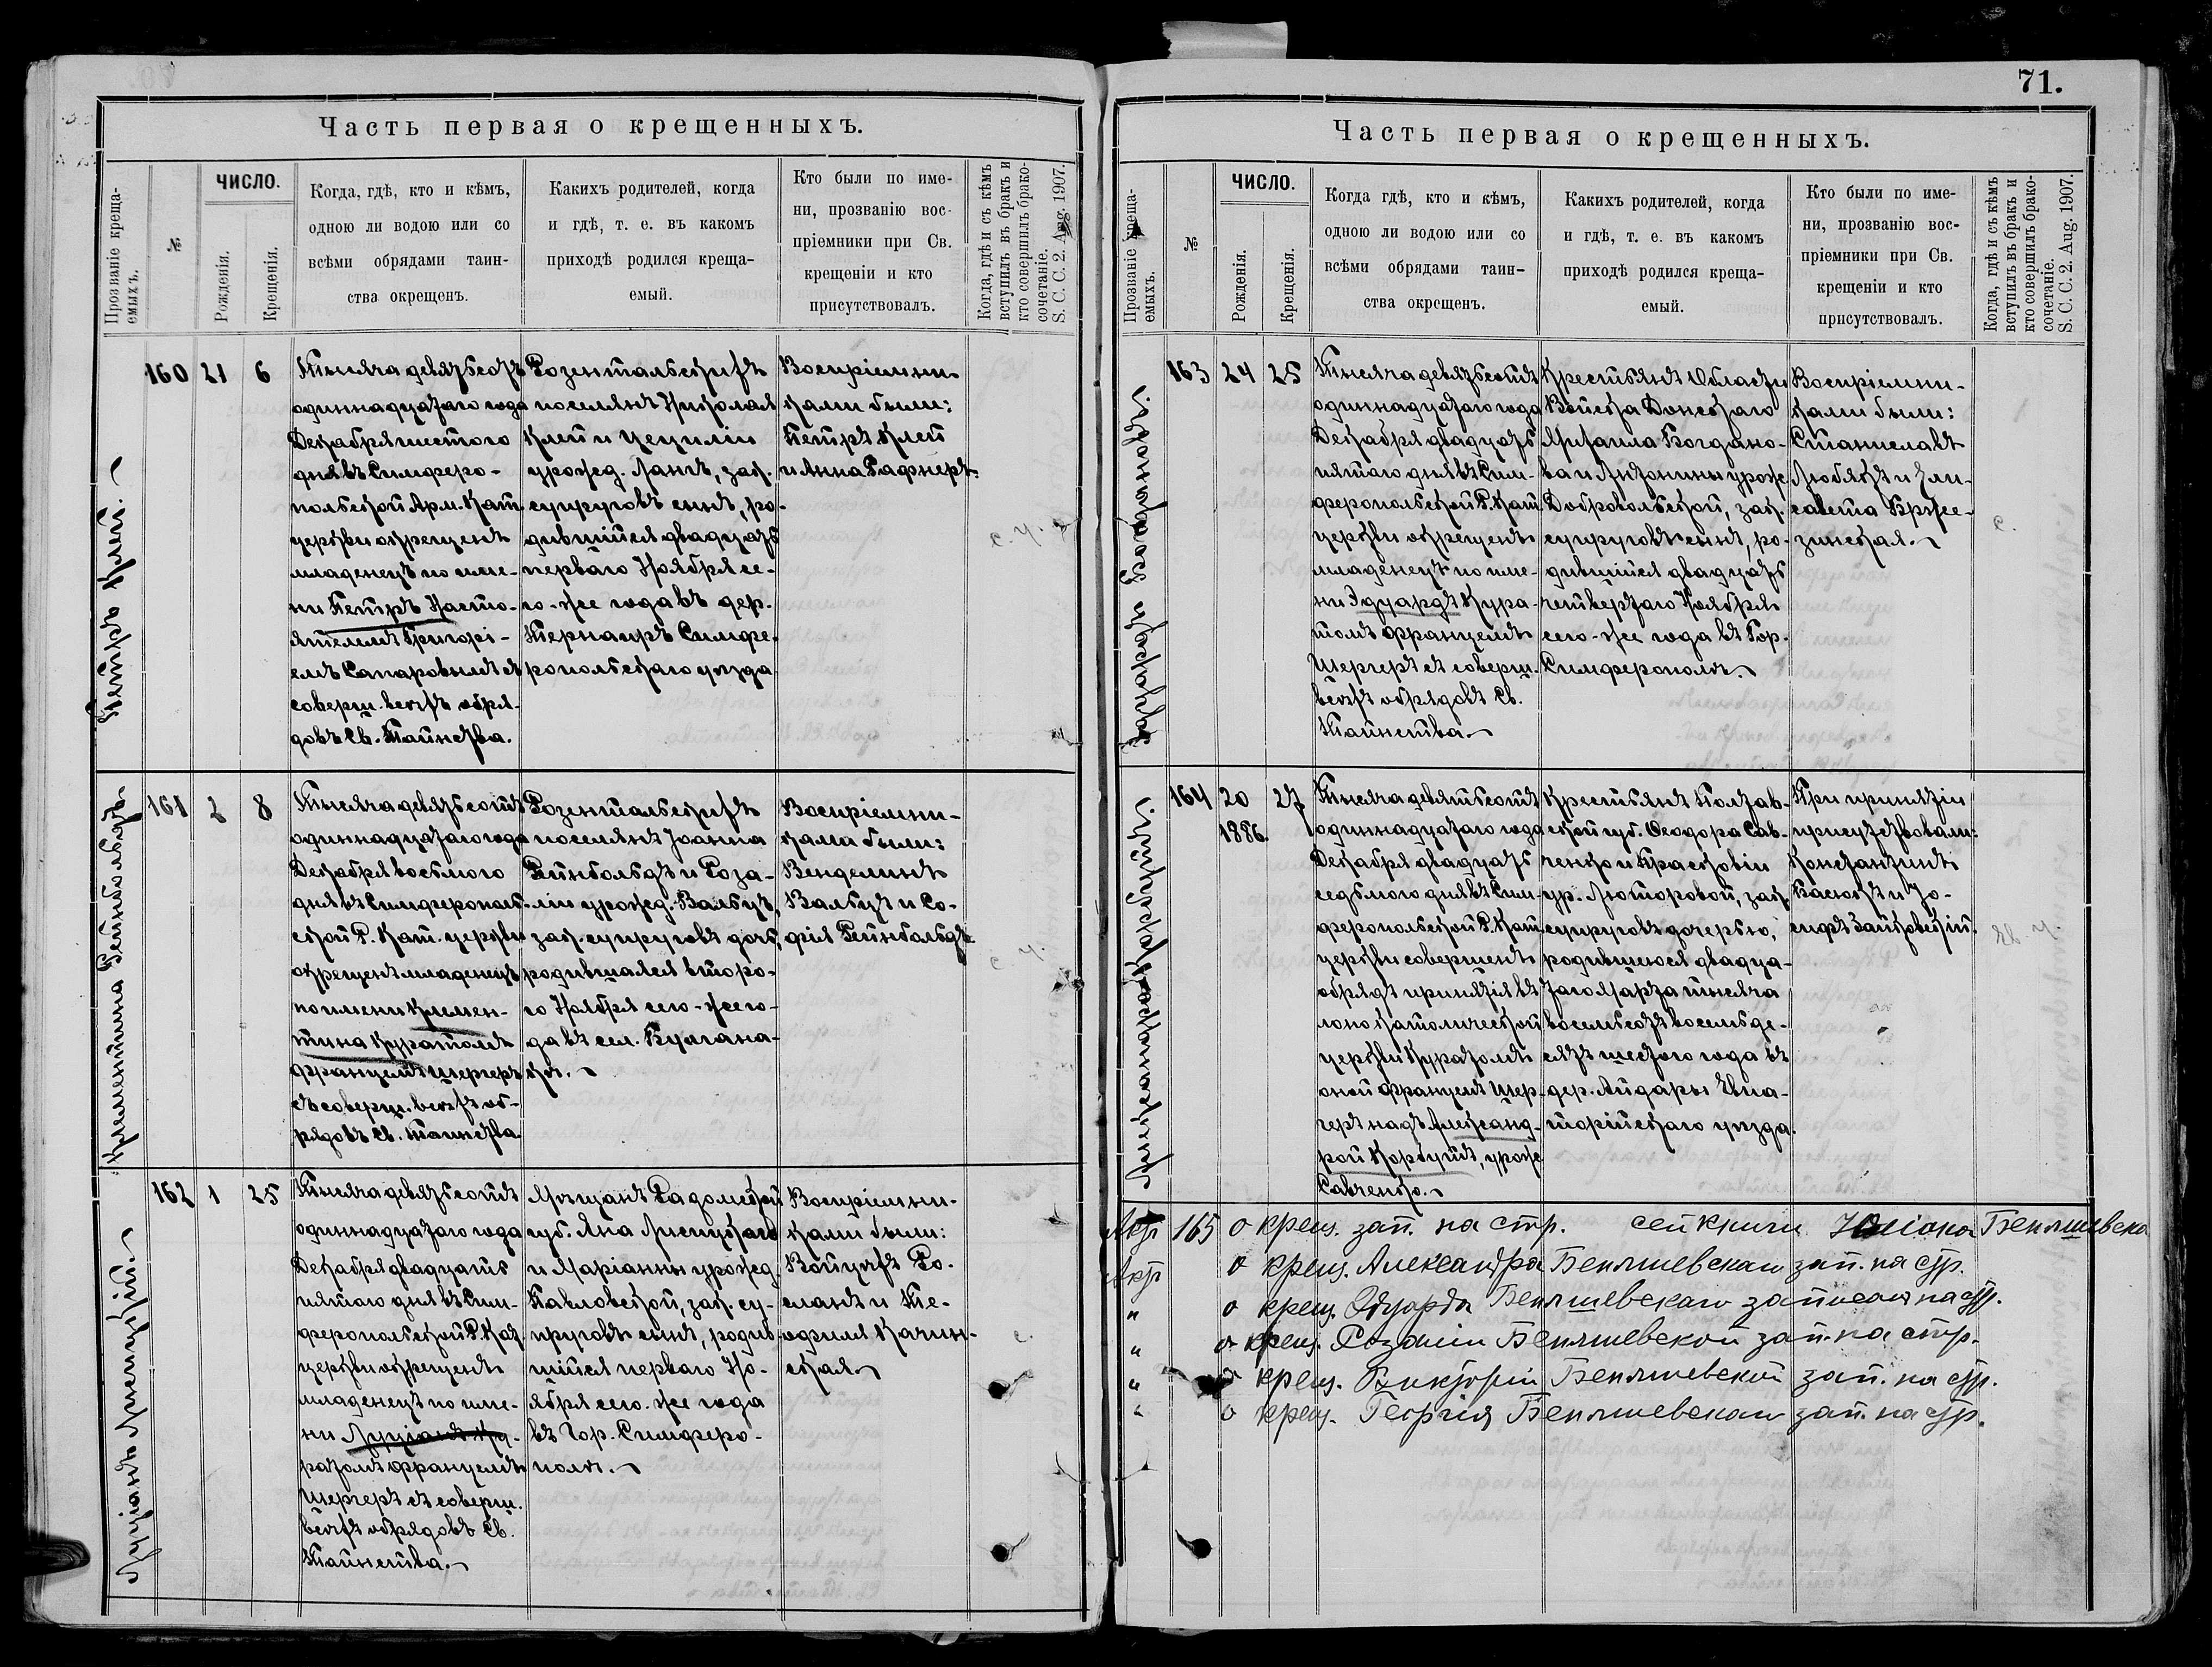 71.
Часть первая о крещенныхъ.
Прозваніе креща-
емыхъ.
№
ЧИСЛО.
Рожденія.
Крещенія.
Когда, гдѣ, кто и кѣмъ,
одною ли водою или со
всѣми обрядами таин-
ства окрещенъ.
Какихъ родителей, когда
и гдѣ, т. е. въ какомъ
приходѣ родился креща-
емый.
Кто были по име-
ни, прозванію вос-
пріемники при Св.
крещеніи и кто
присутствовалъ.
Когда, гдѣ и съ кѣмъ
вступилъ въ бракъ и
кто совершилъ брако-
сочетаніе.
S. C. C. 2. Aug. 1907.
Петръ Клей.
160
21
6
Тысяча девятьсотъ
одиннадцатаго года
Декабря шестого
дня въ Симферо-
польской Арм. Кат.
церкви окрещенъ
младенецъ по име-
ни Петръ Насто-
ятелемъ Григорі-
емъ Сапаровымъ съ
соверш. всѣхъ обря-
довъ Св. Таинства.
Розентальскихъ
поселянъ Николая
Клей и Цециліи
урожд. Лангъ, зак.
супруговъ сынъ, ро-
дившійся двадцать
перваго Ноября се-
го-же года въ дер.
Тернаиръ Симфе-
ропольскаго уѣзда
Воспріемни-
ками были:
Петръ Клей
и Анна Рафнеръ.
Клементина Рейнбольдъ
161
2
8
Тысяча девятьсотъ
одиннадцатаго года
Декабря восьмого
дня въ Симферополь-
ской Р. Кат. церкви
окрещенъ младенецъ
по имени Клемен-
тина Куратомъ
Францемъ Шергеръ
съ соверш. всѣхъ об-
рядовъ Св. Таинства.
Розентальскихъ
поселянъ Іоанна
Рейнбольдъ и Роза-
ліи урожд. Вальцъ,
зак. супруговъ дочь,
родившаяся второ-
го Ноября сего-же го-
да въ сел. Булгана-
кѣ.
Воспріемни-
ками были:
Венделинъ
Вальцъ и Со-
фія Рейнбольдъ
Луціанъ Липицкій.
162
1
25
Тысяча девятьсотъ
одиннадцатаго года
Декабря двадцать
пятаго дня въ Сим-
феропольской Р. Кат.
церкви окрещенъ
младенецъ по име-
ни Луціанъ Ку-
ратомъ Францемъ
Шергеръ съ соверш.
всѣхъ обрядовъ Св.
Таинства.
Мѣщанъ Радомской
губ. Яна Липицкаго
и Маріанны урожд.
Павловской, зак. су-
пруговъ сынъ, родив-
шійся перваго Но-
ября сего-же года
въ Гор. Симферо-
полѣ.
Воспріемни-
ками были:
Войцехъ Ро-
сланъ и Те-
офиля Качин-
ская.
Часть первая о крещенныхъ.
Прозваніе креща-
емыхъ.
№
ЧИСЛО.
Рожденія.
Крещенія.
Когда гдѣ, кто и кѣмъ,
одною ли водою или со
всѣми обрядами таин-
ства окрещенъ.
Какихъ родителей, когда
и гдѣ, т. е. въ какомъ
приходѣ родился креща-
емый.
Кто были по име-
ни, прозванію вос-
пріемники при Св.
крещеніи и кто
присутствовалъ.
Когда, гдѣ и съ кѣмъ
вступилъ въ бракъ и
кто совершилъ брако-
сочетаніе.
S. C. C. 2. Aug. 1907.
Эдуардъ Богдановъ.
163
24
25
Тысяча девятьсотъ
одиннадцатаго года
Декабря двадцать
пятаго дня въ Сим-
феропольской Р. Кат.
церкви окрещенъ
младенецъ по име-
ни Эдуардъ Кура-
томъ Францемъ
Шергеръ съ соверш.
всѣхъ обрядовъ Св.
Таинства.
Крестьянъ Области
Войска Донскаго
Михаила Богдано-
ва и Антонины урож.
Добровольской, зак.
супруговъ сынъ, ро-
дившійся двадцать
четвертаго Ноября
сего-же года въ Гор.
Симферополѣ.
Воспріемни-
ками были:
Станиславъ
Любякъ и Ели-
савета Брже-
зинская.
Александра Корбуцъ.
164
20
1886
27
Тысяча девятьсотъ
одиннадцатаго года
Декабря двадцать
седьмого дня въ Сим-
феропольской Р. Кат.
церкви совершенъ
обрядъ принятія въ
лоно католической
церкви Куратомъ
оной Францемъ Шер-
геръ надъ Александ-
рой Корбуцъ, урож.
Савченко.
Крестьянъ Полтав-
ской губ. Ѳеодора Сав-
ченко и Прасковіи
ур. Люторовой, зак.
супруговъ дочерью,
родившеюся двадца-
таго Марта тысяча
восемьсотъ восемьде-
сятъ шестого года въ
дер. Айдары Евпа-
торійскаго уѣзда.
При принятіи
присутствовали:
Константинъ
Васюкъ и Іо-
сифъ Зайковскій.
Актъ 165 о крещ. зап. на стр. сей книги Юліана Беняшевска
Актъ о крещ. Александра Беняшевскаго зап. на стр.
" о крещ. Эдуарда Беняшевскаго записанъ на стр.
" о крещ. Розаліи Беняшевской зап. на стр.
" о крещ. Викторіи Беняшевской зап. на стр.
" о крещ. Георгія Беняшевскаго зап. на стр.